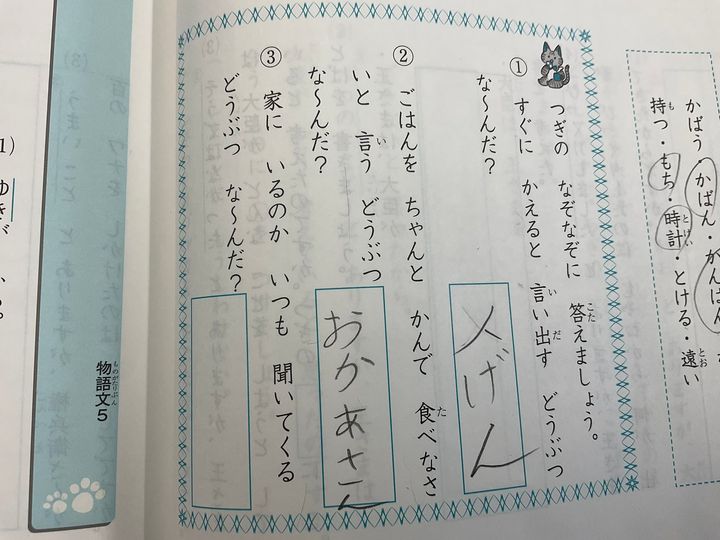 かばう かばん・がんばん
持つ・もち・時計・とける・遠い
つぎの なぞなぞに 答えましょう。
① すぐに かえると 言い出す どうぶつ
な〜んだ?
メげん
② ごはんを ちゃんと かんで 食べなさ
いと 言う どうぶつ
な〜んだ?
おかあさん
③ 家に いるのか いつも 聞いてくる
どうぶつ な〜んだ?
物語文5